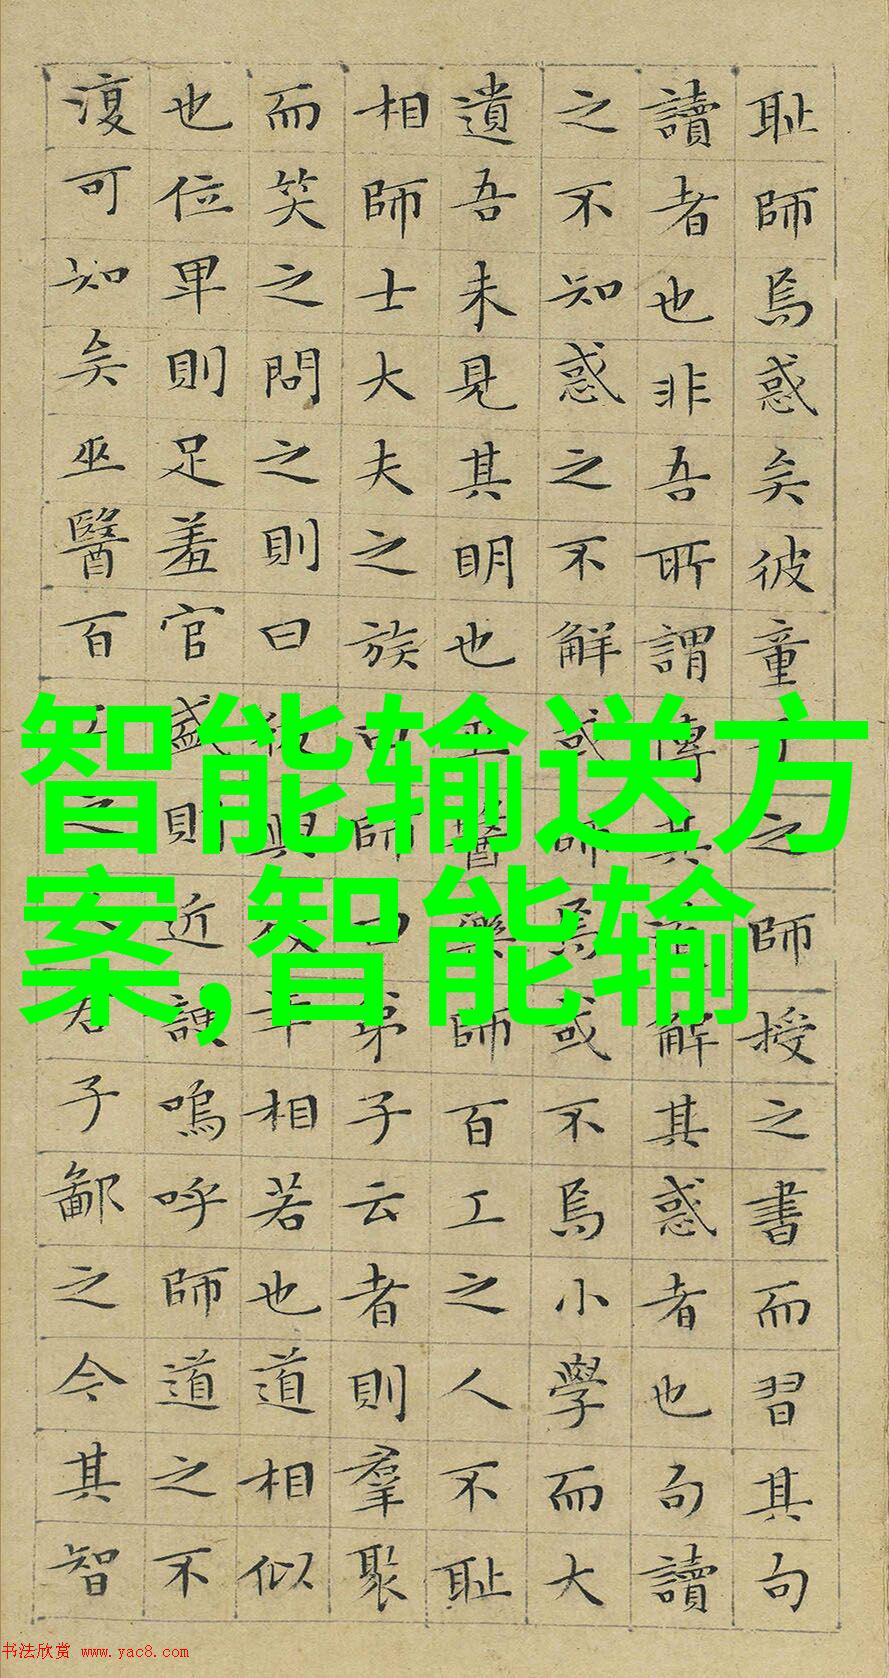 耻師焉惑矣彼童子之師授之書而習其句
讀者也非吾所謂傳其道解其惑者也句讀
之不知惑之不解或師焉或不焉小學而大
遺吾未見其明也巫醫樂師百工之人不耻
相師士大夫之族曰師曰弟子云者則羣聚
而笑之問之則曰彼與彼年相若也道相似
也位卑則足羞官盛則近諛嗚呼師道之不
復可知矣巫醫百之君子鄙之今其智
智能输送方
案,智能输
书法欣赏 www.yac8.com